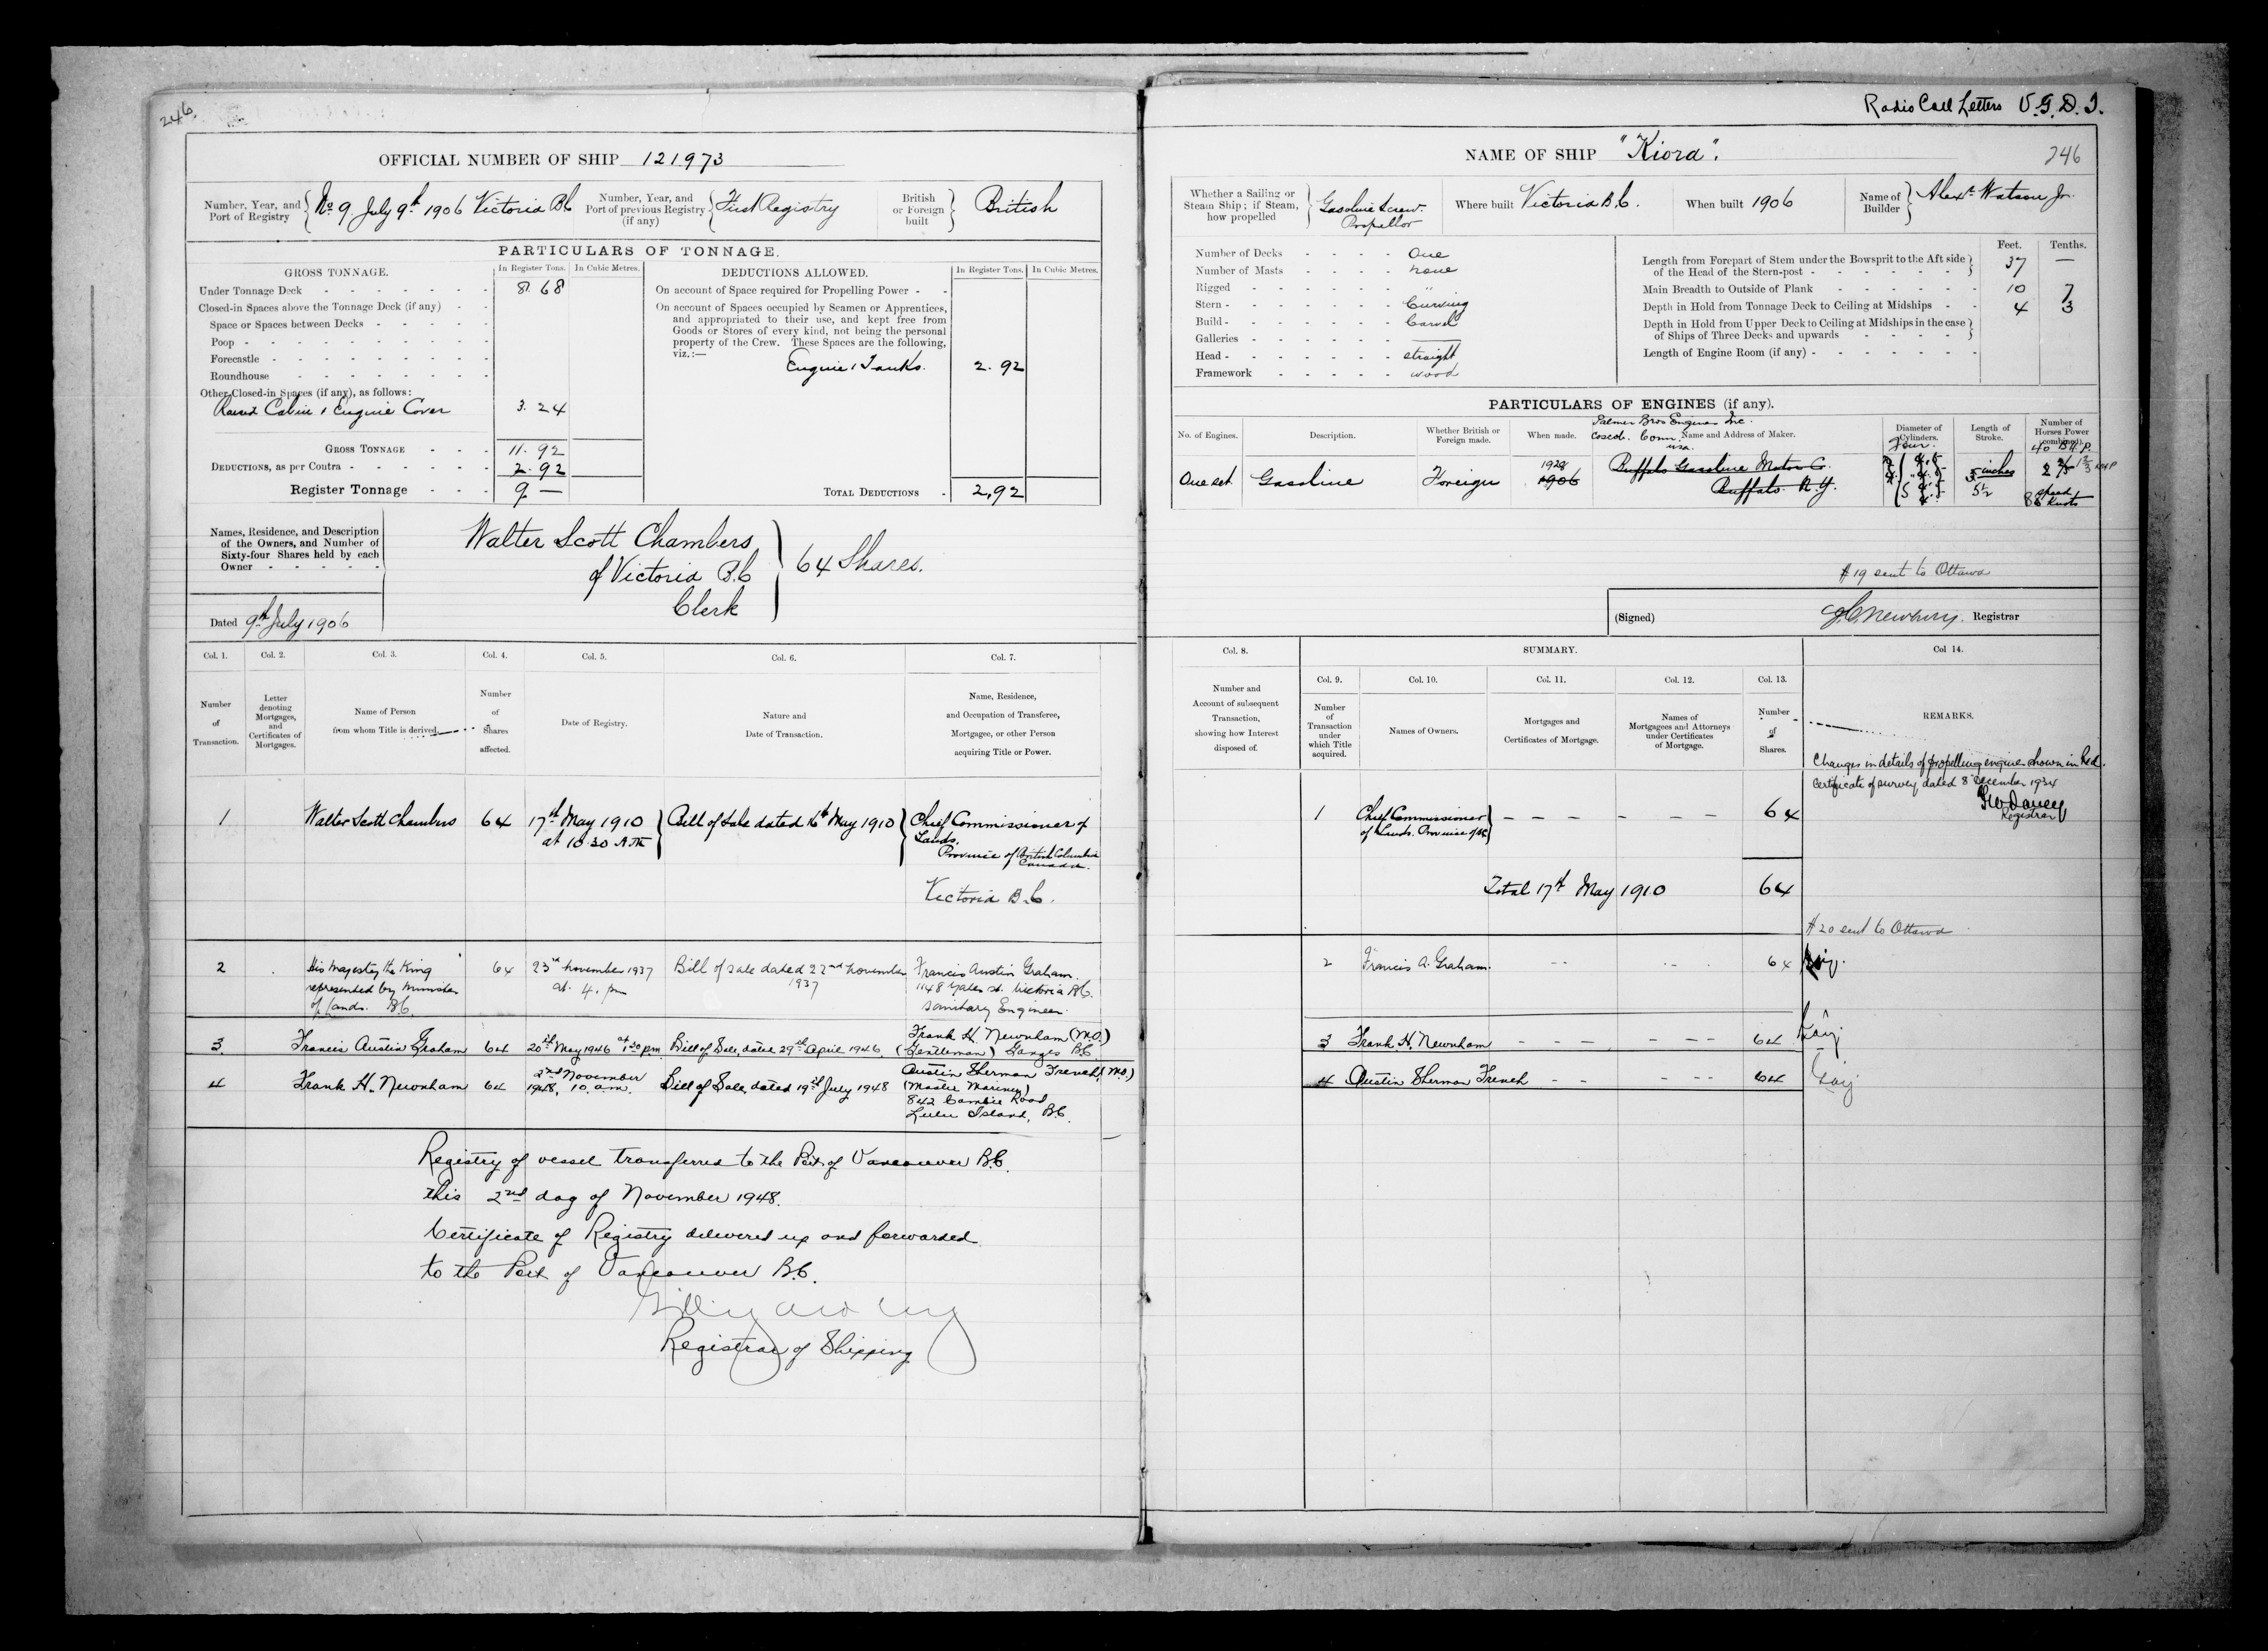 246.
OFFICIAL NUMBER OF SHIP 121973
Number, Year, and Port of Registry { No 9. July 9th 1906 Victoria B.C
Number, Year, and Port of previous Registry (if any) { First Registry
British or Foreign built } British
PARTICULARS OF TONNAGE.
GROSS TONNAGE. In Register Tons. In Cubic Metres.
Under Tonnage Deck - - - - - 8. 68
Closed-in Spaces above the Tonnage Deck (if any) - -
Space or Spaces between Decks - - - - -
Poop - - - - - - - - -
Forecastle - - - - - - - -
Roundhouse - - - - - -
Other Closed-in Spaces (if any), as follows:
Raised Cabin & Engine Cover 3. 24
GROSS TONNAGE - - - 11. 92
DEDUCTIONS, as per Contra - - - - - 2. 92
Register Tonnage - - - 9 —
DEDUCTIONS ALLOWED. In Register Tons. In Cubic Metres.
On account of Space required for Propelling Power - -
On account of Spaces occupied by Seamen or Apprentices,
and appropriated to their use, and kept free from
Goods or Stores of every kind, not being the personal
property of the Crew. These Spaces are the following,
viz.:—
Engine & Tanks. 2. 92
TOTAL DEDUCTIONS - 2,92
Names, Residence, and Description
of the Owners, and Number of
Sixty-four Shares held by each
Owner - - - - -
Walter Scott Chambers
of Victoria B.C
Clerk
} 64 Shares.
Dated 9th July 1906
Col. 1. Col. 2. Col. 3. Col. 4. Col. 5. Col. 6. Col. 7.
Number of Transaction.
Letter denoting Mortgages, and Certificates of Mortgages.
Name of Person from whom Title is derived.
Number of Shares affected.
Date of Registry.
Nature and Date of Transaction.
Name, Residence, and Occupation of Transferee, Mortgagee, or other Person acquiring Title or Power.
1 Walter Scott Chambers 64 17th May 1910 at 10.30 A.M. } Bill of Sale dated 16th May 1910 } Chief Commissioner of
Lands.
Province of British Columbia
Canada.
Victoria B.C.
2 His Majesty the King represented by Minister of Lands. BC. 64 23rd November 1937 at 4. pm Bill of sale dated 22nd November 1937 Francis Austin Graham.
1148 Yates St. Victoria B.C.
Sanitary Engineer.
3. Francis Austin Graham 64 20th May 1946 at 1.30 pm. Bill of Sale, dated 29th April 1946. Frank H. Newnham (M.O.)
(Gentleman) Ganges B.C.
4 Frank H. Newnham 64 2nd November 1948, 10. a.m. Bill of Sale, dated 19th July 1948 Austin Sherman French (M.O.)
(Master Mariner)
842 Cambie Road
Lulu Island, B.C.
Registry of vessel transferred to the Port of Vancouver B.C.
this 2nd day of November 1948.
Certificate of Registry delivered up and forwarded
to the Port of Vancouver B.C.
Registrar of Shipping
Radio Call Letters V.G.D.J.
NAME OF SHIP "Kiora". 246
Whether a Sailing or Steam Ship; if Steam, how propelled } Gasoline Screw. Propellor
Where built Victoria B.C. When built 1906
Name of Builder } Alexr. Watson Jr.
Number of Decks - - - - One
Number of Masts - - - - none
Rigged - - - - - - "
Stern - - - - - - - Curving
Build - - - - - - - Carvel
Galleries - - - - - - —
Head - - - - - - - straight
Framework - - - - - wood
Feet. Tenths.
Length from Forepart of Stem under the Bowsprit to the Aft side of the Head of the Stern-post - - - - - - - } 37 —
Main Breadth to Outside of Plank - - - - - - 10 7
Depth in Hold from Tonnage Deck to Ceiling at Midships - - 4 3
Depth in Hold from Upper Deck to Ceiling at Midships in the case of Ships of Three Decks and upwards - - - - - }
Length of Engine Room (if any) - - - - - - -
PARTICULARS OF ENGINES (if any).
No. of Engines. Description. Whether British or Foreign made. When made. Name and Address of Maker. Diameter of Cylinders. Length of Stroke. Number of Horses Power (combined).
Palmer Bros Engines Inc.
Coscob. Conn.
USA.
One set Gasoline Foreign 1928 1906 Buffalo Gasoline Motor Co.
Buffalo. N.Y.
Four. 5 inches 5½ 40 B.H.P.
speed
Knots
# 19 sent to Ottawa
(Signed) J.C. Newbury. Registrar
Col. 8. SUMMARY. Col 14.
Col. 9. Col. 10. Col. 11. Col. 12. Col. 13.
Number and Account of subsequent Transaction, showing how Interest disposed of.
Number of Transaction under which Title acquired.
Names of Owners.
Mortgages and Certificates of Mortgage.
Names of Mortgagees and Attorneys under Certificates of Mortgage.
Number of Shares.
REMARKS.
Changes in details of propelling engine shown in Red.
Certificate of survey dated 8 December 1934
Registrar
1 Chief Commissioner of Lands. Province of BC } – – – – – – 64
Total 17th May 1910 64
# 20 sent to Ottawa
2 Francis A. Graham. -- -- 64
3 Frank H. Newnham - - - - - - 64
4 Austin Sherman French - - - - - 64